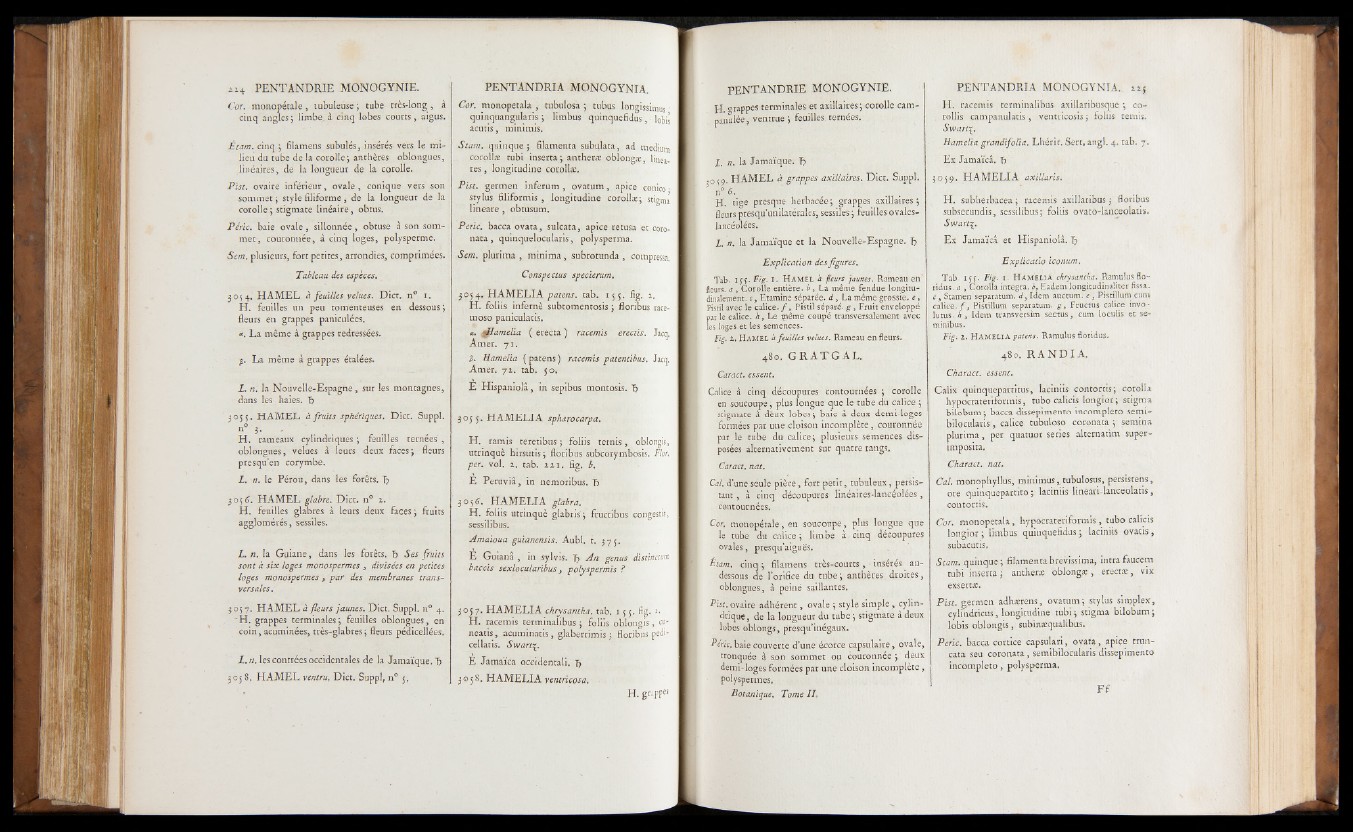 224 PENTANDRIE MONOGYNIE.
Cor. monopétale, tubuleuse; tube très-long, à
cinq angles; limbe à cinq lobes courts, aigus.
Étam. cinq; filamens subulés, insérés vers le mi-
lieu du tube de la corolle; anthères oblongues,
linéaires, de la longueur de la corolle.
Pist. ovaire inférieur, ovale, conique vers son
sommet; style filiforme, de la longueur de la
corolle; stigmate linéaire, obtus.
Péric. baie ovale, sillonnée, obtuse à son som-
met, couronnée, à cinq loges, polysperme.
Sem. plusieurs, fort petites, arrondies, comprimées.
Tableau des espèces.
3054. HAMEL à feuilles velues. Dict. n° 1.
H. feuilles un peu tomenteuses en dessous;
fleurs en grappes paniculées.
α. La même à grappes redressées.
β. La même à grappes étalées.
L. n. la Nouvelle-Espagne, sur les montagnes,
dans les haies. ♄
3055. HAMEL à fruits sphériques. Dict. Suppl.
n° 3.
H. rameaux cylindriques; feuilles ternées,
oblongues, velues à leurs deux faces; fleurs
presqu'en corymbe.
L. n. le Pérou, dans les forêts. ♄
3056. HAMEL glabre. Dict. n° 2.
H. feuilles glabres à leurs deux faces; fruits
agglomérés, sessiles.
L. n. la Guiane, dans les forêts. ♄ Ses fruits
sont à six loges monospermes, divisées en petites
loges monospermes, par des membranes trans-
versales.
3057. HAMEL à fleurs jaunes. Dict. Suppl. n° 4.
H. grappes terminales; feuilles oblongues, en
coin, acuminées, très-glabres; fleurs pédicellées.
L. n. les contrées occidentales de la Jamaïque. ♄
3058. HAMEL ventru. Dict. Suppl, n° 5.
PENTANDRIA MONOGYNIA.
Cor. monopetala, tubulosa; tubus longissimus,
quinquangularis; limbus quinquefidus, lobis
acutis, minimis.
Stam. quinque; filamenta subulata, ad medium
corollæ tubi inserta; antheræ oblongæ, linea-
res, longitudine corollæ.
Pist. germen inferum, ovatum, apice conico;
stylus filiformis, longitudine corollæ; stigma
lineare, obtusum.
Peric. bacca ovata, sulcata, apice retusa et coro-
nata, quinquelocularis, polysperma.
Sem. plurima, minima, subrotunda, compressa.
Conspectus specierum.
3054. HAMELIA patens. tab. 155. fig. 2.
H. foliis infernè subtomentosis; floribus race-
moso paniculatis.
α. Hamelia (erecta) racemis erectis. Jacq.
Amer. 71.
β. Hamelia (patens) racemis patentibus. Jacq.
Amer. 72. tab. 50.
È Hispaniolâ, in sepibus montosis. ♄
3055. HAMELIA sphærocarpa.
H. ramis teretibus; foliis ternis, oblongis,
utrinquè hirsutis; floribus subcorymbosis. Flor.
per. vol. 2. tab. 221. fig. b.
È Peruviâ, in nemoribus. ♄
3056. HAMELIA glabra.
H. foliis utrinquè glabris; fructibus congestis,
sessilibus.
Amaioua guianensis. Aubl. t. 375.
È Guianâ, in sylvis. ♄ An genus distinctum
baccis sexlocularibus, polyspermis?
3057. HAMELIA chrysantha. tab. 155. fig. 1.
H. racemis terminalibus; foliis oblongis, cu-
neatis, acuminatis, glaberrimis; floribus pedi-
cellatis. Swartz.
È Jamaica occidentali. ♄
3058. HAMELIA ventricosa.
H. grappes
PENTANDRIE MONOGYNIE.
H. grappes terminales et axillaires; corolle cam-
panulée, ventrue; feuilles ternées.
L. n. la Jamaïque. ♄
3059. HAMEL à grappes axillaires. Dict. Suppl.
n° 6.
H. tige presque herbacée; grappes axillaires;
fleurs presqu'unilatérales, sessiles; feuilles ovales-
lancéolées.
L. n. la Jamaïque et la Nouvelle-Espagne. ♄
Explication des figures.
Tab. 155. Fig. 1. HAMEL à fleurs jaunes. Rameau en
fleurs. a, Corolle entière. b, La même fendue longitu-
dinalement. c, Etamine séparée. d, La même grossie. e,
Pistil avec le calice. f, Pistil séparé. g, Fruit enveloppé
par le calice. h, Le même coupé transversalement avec
les loges et les semences.
Fig. 2. HAMEL à feuilles velues. Rameau en fleurs.
480. GRATGAL.
Caract. essent.
Calice à cinq découpures contournées; corolle
en soucoupe, plus longue que le tube du calice;
stigmate à deux lobes; baie à deux demi-loges
formées par une cloison incomplète, couronnée
par le tube du calice; plusieurs semences dis-
posées alternativement sur quatre rangs.
Caract. nat.
Cal. d'une seule pièce, fort petit, tubuleux, persis-
tant, à cinq découpures linéaires-lancéolées,
contournées.
Cor. monopétale, en soucoupe, plus longue que
le tube du calice; limbe à cinq découpures
ovales, presqu'aiguës.
Étam. cinq; filamens très-courts, insérés au-
dessous de l'orifice du tube; anthères droites,
oblongues, à peine saillantes.
Pist. ovaire adhérent, ovale; style simple, cylin-
drique, de la longueur du tube; stigmate à deux
lobes oblongs, presqu'inégaux.
Péric. baie couverte d'une écorce capsulaire, ovale,
tronquée à son sommet ou couronnée; deux
demi-loges formées par une cloison incomplète,
polyspermes.
Botanique. Tome II.
PENTANDRIA MONOGYNIA. 225
H. racemis terminalibus axillaribusque; co-
rollis campanulatis, ventricosis; foliis ternis.
Swartz.
Hamelia grandifolia. Lhérit. Sert. angl. 4. tab. 7.
Ex Jamaïcâ. ♄
3059. HAMELIA axillaris.
H. subherbacea; racemis axillaribus; floribus
subsecundis, sessilibus; foliis ovato-lanceolatis.
Swartz.
Ex Jamaïcâ et Hispaniolâ. ♄
Explicatio iconum.
Tab. 155. Fig. 1. HAMELIA chrysantha. Ramulus flo-
ridus. a, Corolla integra. b, Eadem longitudinaliter fissa.
c, Stamen separatum. d, Idem auctum. e, Pistillum cum
calice. f, Pistillum separatum. g, Fructus calice invo-
lutus. h, Idem transversim sectus, cum loculis et se-
minibus.
Fig. 2. HAMELIA patens. Ramulus floridus.
480. RANDIA.
Charact. essent.
Calix quinquepartitus, laciniis contortis; corolla
hypocrateriformis, tubo calicis longior; stigma
bilobum; bacca dissepimento incompleto semi-
bilocularis, calice tubuloso coronata; semina
plurima, per quatuor series alternatim super-
imposita.
Charact. nat.
Cal. monophyllus, minimus, tubulosus, persistens,
ore quinquepartito; laciniis lineari-lanceolatis,
contortis.
Cor. monopetala, hypocrateriformis, tubo calicis
longior; limbus quinquefidus; laciniis ovatis,
subacutis.
Stam. quinque; filamenta brevissima, intra faucem
tubi inserta; antheræ oblongæ, erectæ, vix
exsertæ.
Pist. germen adhærens, ovatum; stylus simplex,
cylindricus, longitudine tubi; stigma bilobum;
lobis oblongis, subinæqualibus.
Peric. bacca cortice capsulari, ovata, apice trun-
cata seu coronata, semibilocularis dissepimento
incompleto, polysperma.
Ff